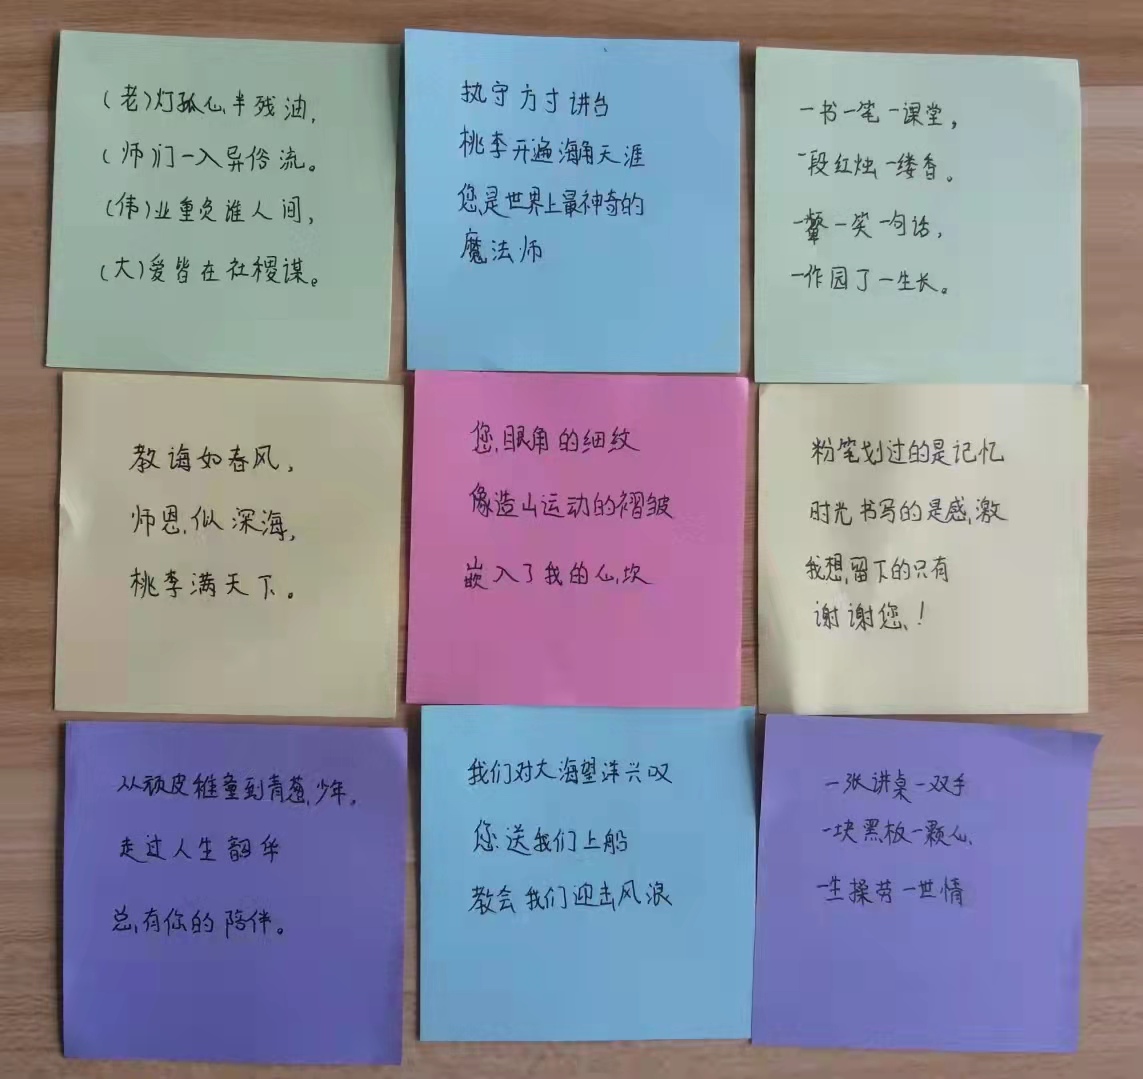 (老)灯孤心半残油,
(师)们一入异俗流。
(伟)业重负谁人间,
(大)爱皆在社稷谋。
执守方寸讲台
桃李开遍海角天涯
您是世界上最神奇的
魔法师
一书一笔一课堂,
一段红烛一缕香。
一颦一笑一句话,
一作园丁一生长。
教诲如春风,
师恩似深海,
桃李满天下。
您眼角的细纹
像造山运动的褶皱
嵌入了我的心坎
粉笔划过的是记忆
时光书写的是感激
我想留下的只有
谢谢您!
从顽皮稚童到青葱少年,
走过人生韶华
总有你的陪伴。
我们对大海望洋兴叹
您送我们上船
教会我们迎击风浪
一张讲桌一双手
一块黑板一颗心
一生操劳一世情